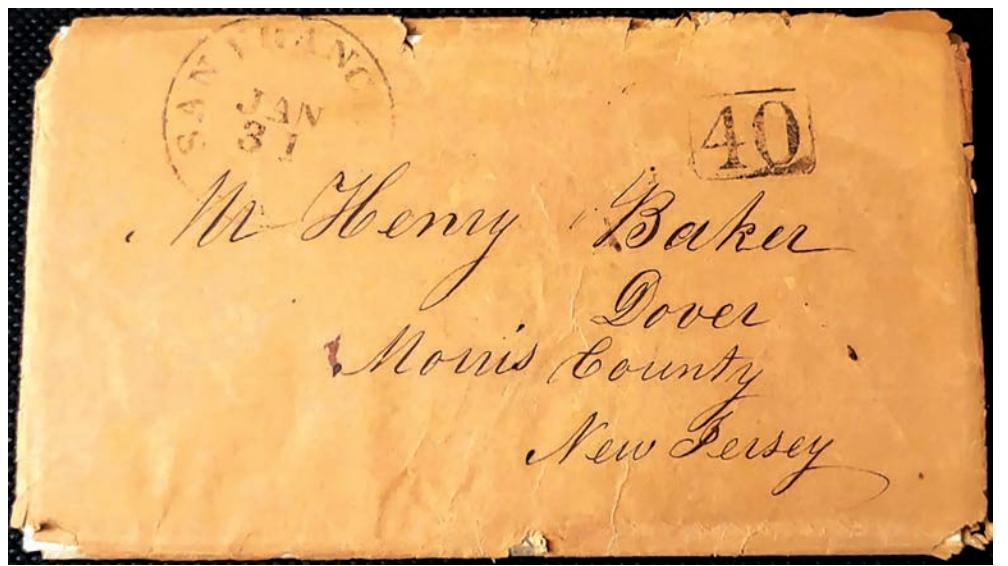 SAN FRANC
JAN
31
40
Mr Henry Baker
Dover
Morris County
New Jersey